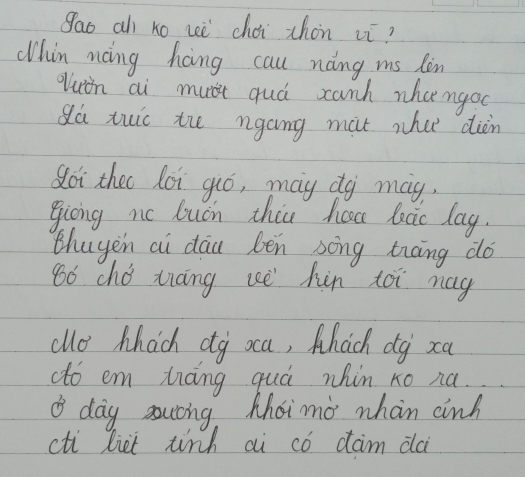 Sao ah ko về chơi thôn vĩ?
Nhìn nắng hàng cau nắng ms lên
Vườn ai mướt quá xanh như ngọc
Lá trúc tre ngang mặt như điền
Gói theo lối gió, mây đg mây.
Giòng nc buồn thiu hoa bắc lay.
Thuyền ai đậu bến sông trăng đó
Có chở trăng về kịp tối nay
Mơ khách đg xa, khách đg xa
Áo em trắng quá nhìn ko ra...
Ở đây sương khói mờ nhân ảnh
Ai biết tình ai có đậm đà